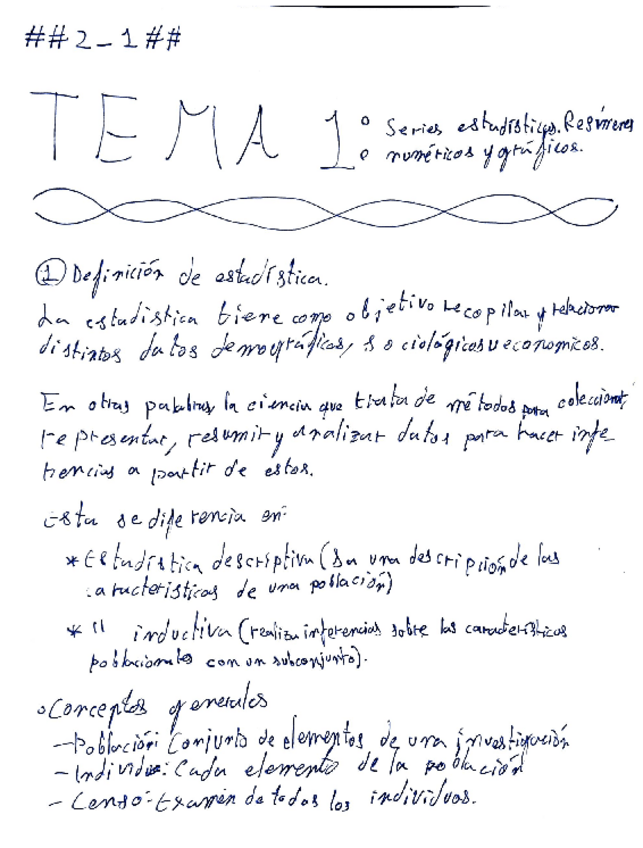 ##2-1##
TEMA 1: Series estadísticas. Resúmenes
numéricos y gráficos.
① Definición de estadística.
La estadística tiene como objetivo recopilar y relacionar
distintos datos demográficos, sociológicos u economicos.
En otras palabras, la ciencia que trata de métodos para coleccionar,
representar, resumir y analizar datos para hacer infe
rencias a partir de estos.
Esta se diferencia en:
* Estadística descriptiva (Da una descripción de las
características de una población)
* " inductiva (realiza inferencias sobre las características
poblacionales con un subconjunto).
∘ Conceptos generales
- Población: Conjunto de elementos de una investigación
- Individuo: Cada elemento de la población
- Censo: Examen de todos los individuos.